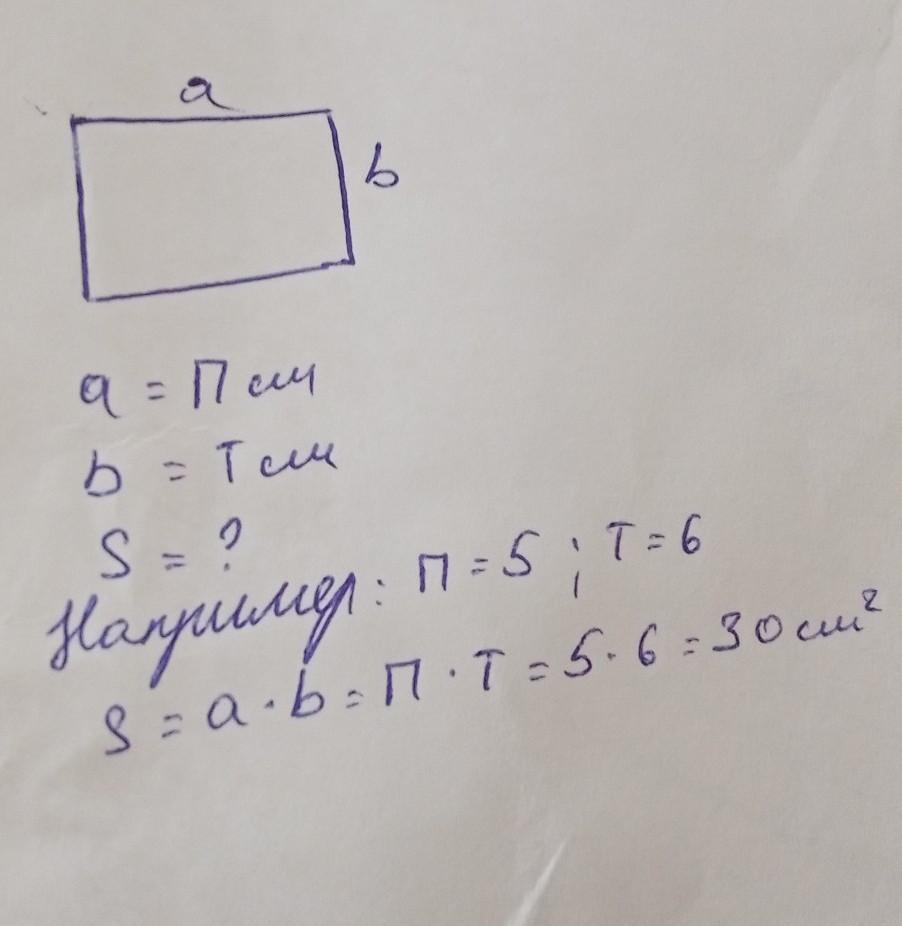 a
b
a = П см
b = Т см
S = ?
Например: П = 5 ; Т = 6
S = a · b = П · Т = 5 · 6 = 30 см²